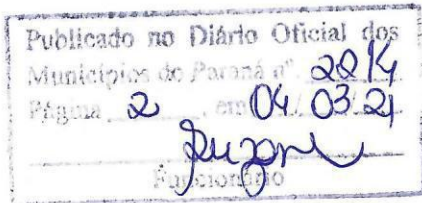 Publicado no Diário Oficial dos
Municípios do Paraná nº 2214
Página 2, em 04/03/21
Funcionário